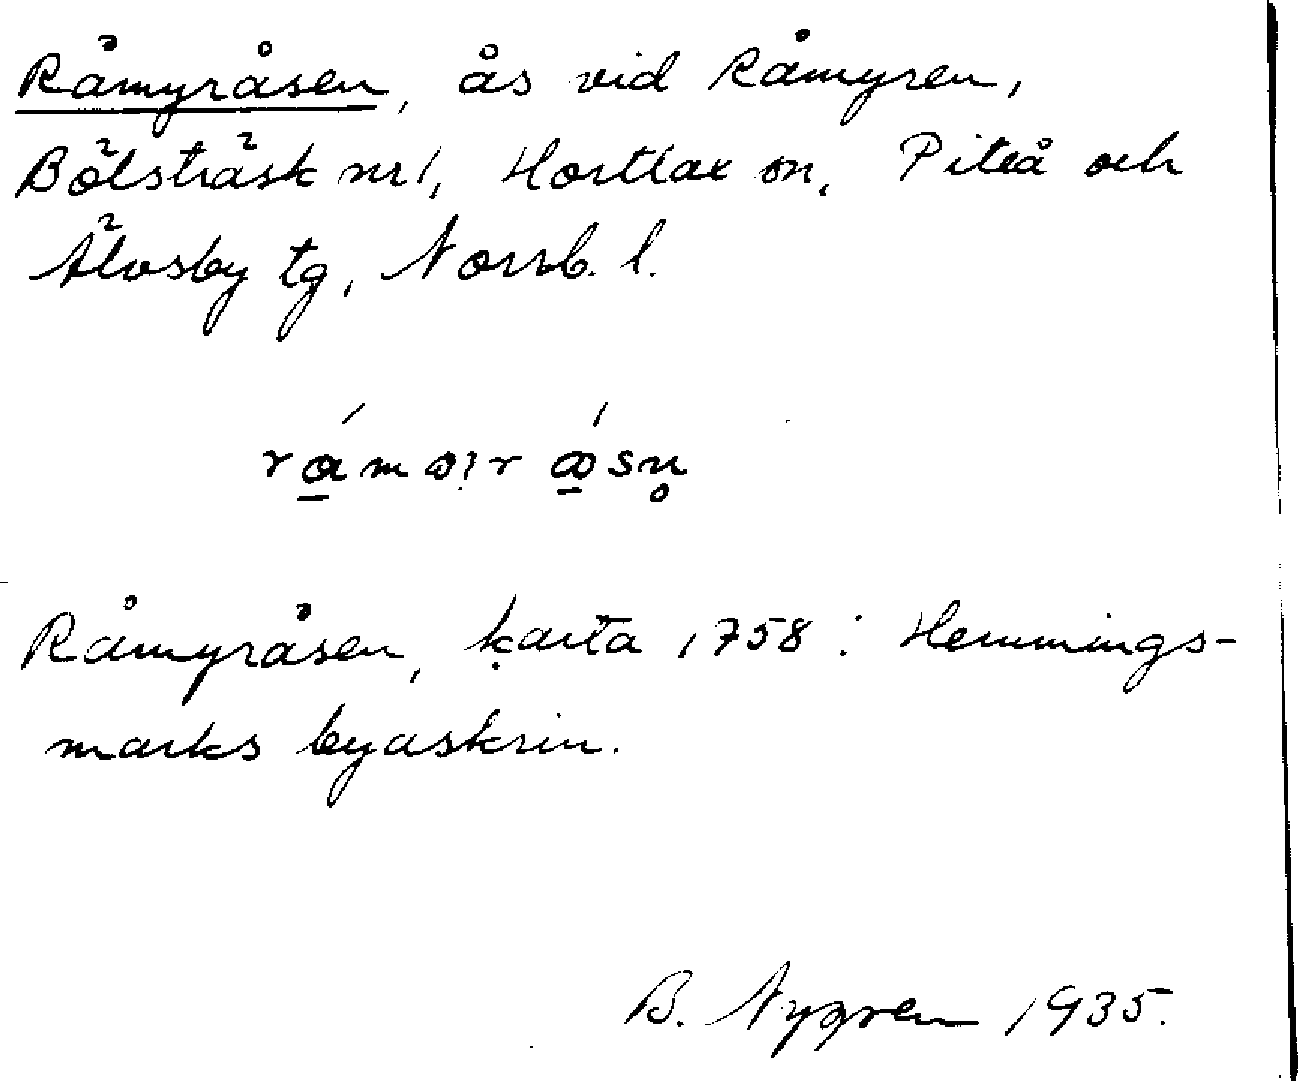 Råmyråsen, ås vid Råmyren,
Bölsträsk nr 1, Hortlax sn, Piteå och
Älvsby tg, Norrb. l.
Råmyråsen, karta 1758 : Hemmings-
marks byaskrin.
B. Nygren 1935.